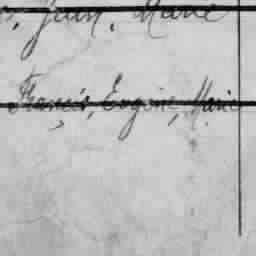 , Jean, Marie
François, Eugène, Marie